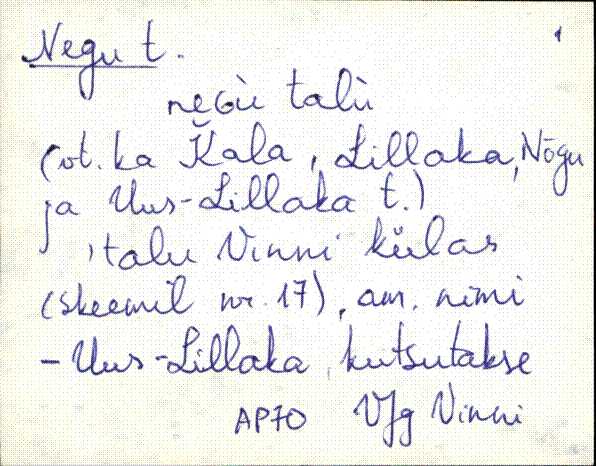 Negu t.
neGù talù
(vt. ka Kala, Lillaka, Nõgu
ja Uus-Lillaka t.)
, talu Vinni külas
(skeemil nr. 17), am. nimi
- Uus-Lillaka, kutsutakse
AP70 VJg Vinni